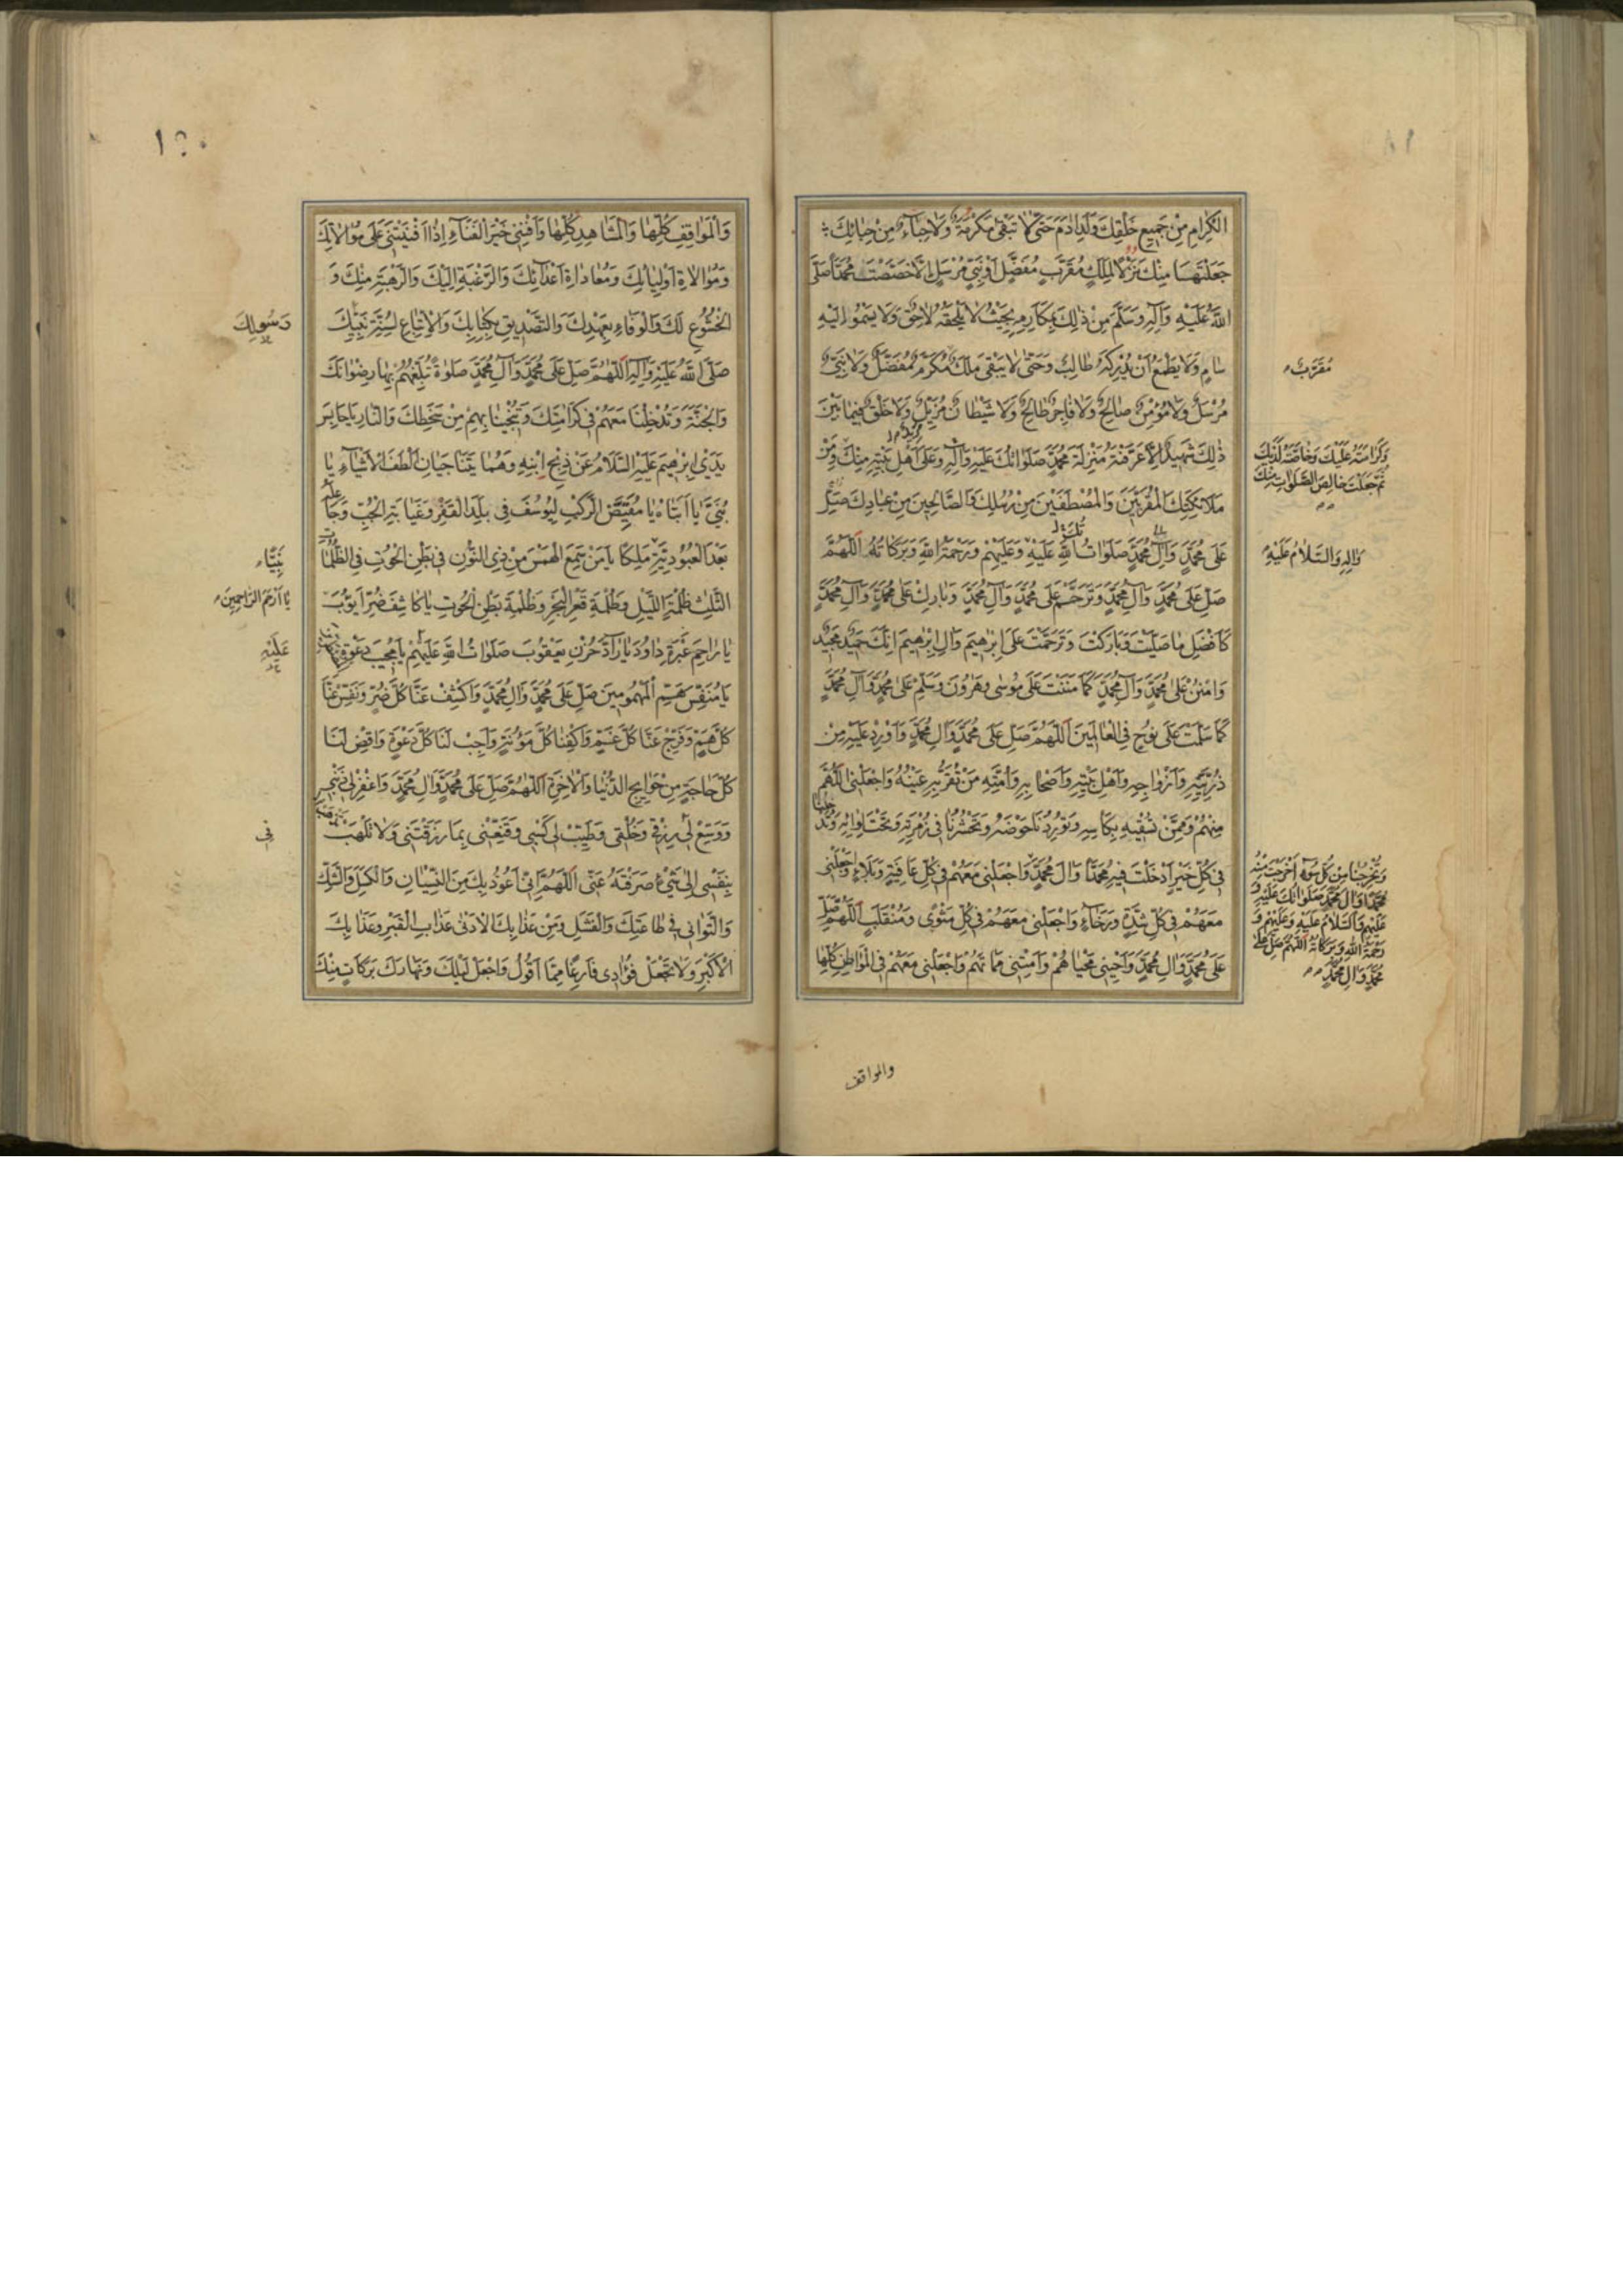 الكِرامِ مِنْ جَميعِ خَلْقِكَ وَلَدِ ادَمَ حَتّى لا تَبْقى مَكْرُمَةٌ وَلا حِبآءٌ مِنْ حِبائِكَ
جَعَلْتَها مِنْكَ نُزُلًا لِمَلَكٍ مُقَرَّبٍ مُفَضَّلٍ اَوْ نَبِيٍّ مُرْسَلٍ اِلّا خَصَصْتَ مُحَمَّدًا صَلَّى
اللهُ عَلَيْهِ وَآلِهِ وَسَلَّمَ مِنْ ذلِكَ بِمَكارِمِ بِحَيْثُ لا يَلْحَقُهُ لاحِقٌ وَلا يَسْمُو اِلَيْهِ
سامٍ وَلا يَطْمَعُ اَنْ يُدْرِكَهُ طالِبٌ وَحَتّى لا يَبْقى مَلَكٌ مُكْرَمٌ مُفَضَّلٌ وَلا نَبِيٌّ
مُقَرَّبٌ
مُرْسَلٌ وَلا مُؤْمِنٌ صالِحٌ وَلا فاجِرٌ طالِحٌ وَلا شَيْطانٌ مُزِيلٌ وَلا خَلْقٌ فيما بَيْنَ
ذلِكَ شَهيدٌ اِلّا عَرَّفْتَهُ مَنْزِلَةَ مُحَمَّدٍ صَلَواتُكَ عَلَيْهِ وَآلِهِ وَعَلى اَهْلِ بَيْتِهِ مِنْكَ وَمِنْ
وَكَرامَتَهُ عَلَيْكَ وَخاصَّتَهُ لَدَيْكَ
ثُمَّ جَعَلْتَ خالِصَ الصَّلَواتِ مِنْكَ
مَلائِكَتِكَ الْمُقَرَّبينَ وَالْمُصْطَفَيْنَ مِنْ رُسُلِكَ وَالصّالِحينَ مِنْ عِبادِكَ
عَلى مُحَمَّدٍ وَآلِ مُحَمَّدٍ صَلَواتُ اللهِ عَلَيْهِ وَعَلَيْهِمْ وَرَحْمَةُ اللهِ وَبَرَكاتُهُ اَللّهُمَّ
وَآلِهِ وَالسَّلامُ عَلَيْهِ
صَلِّ عَلى مُحَمَّدٍ وَآلِ مُحَمَّدٍ وَتَرَحَّمْ عَلى مُحَمَّدٍ وَآلِ مُحَمَّدٍ وَبارِكْ عَلى مُحَمَّدٍ وَآلِ مُحَمَّدٍ
كَاَفْضَلِ ما صَلَّيْتَ وَبارَكْتَ وَتَرَحَّمْتَ عَلى اِبْرهيمَ وَآلِ اِبْرهيمَ اِنَّكَ حَميدٌ مَجيدٌ
وَامْنُنْ عَلى مُحَمَّدٍ وَآلِ مُحَمَّدٍ كَما مَنَنْتَ عَلى مُوسى وَهرُونَ وَسَلِّمْ عَلى مُحَمَّدٍ وَآلِ مُحَمَّدٍ
كَما سَلَّمْتَ عَلى نُوحٍ فِي الْعالَمينَ اَللّهُمَّ صَلِّ عَلى مُحَمَّدٍ وَآلِ مُحَمَّدٍ وَاَوْرِدْ عَلَيْهِ مِنْ
ذُرِّيَّتِهِ وَاَزْواجِهِ وَاَهْلِ بَيْتِهِ وَاَصْحابِهِ وَاُمَّتِهِ مَنْ تُقِرُّ بِهِ عَيْنَهُ وَاجْعَلْنِي اللّهُمَّ
مِنْهُمْ وَمِمَّنْ تَسْقيهِ بِكَاْسِهِ وَتُورِدُنا حَوْضَهُ وَتَحْشُرُنا في زُمْرَتِهِ وَتَحْتَ لِوائِهِ وَتُدْخِلُنا
في كُلِّ خَيْرٍ اَدْخَلْتَ فيهِ مُحَمَّدًا وَآلَ مُحَمَّدٍ وَاجْعَلْني مَعَهُمْ في كُلِّ عافِيَةٍ وَبَلاءٍ وَاجْعَلْني
وَتُخْرِجُنا مِنْ كُلِّ سُوءٍ اَخْرَجْتَ مِنْهُ
مُحَمَّدًا وَآلَ مُحَمَّدٍ صَلَواتُكَ عَلَيْهِ وَ
عَلَيْهِمْ وَالسَّلامُ عَلَيْهِ وَعَلَيْهِمْ وَ
رَحْمَةُ اللهِ وَبَرَكاتُهُ اَللّهُمَّ صَلِّ عَلى
مُحَمَّدٍ وَآلِ مُحَمَّدٍ
مَعَهُمْ في كُلِّ شِدَّةٍ وَرَخآءٍ وَاجْعَلْني مَعَهُمْ في كُلِّ مَثْوىً وَمُنْقَلَبٍ اَللّهُمَّ صَلِّ
عَلى مُحَمَّدٍ وَآلِ مُحَمَّدٍ وَاَحْيِني مَحْياهُمْ وَاَمِتْني مَماتَهُمْ وَاجْعَلْني مَعَهُمْ فِي الْمَواطِنِ كُلِّها
والمواقف
وَالْمَواقِفِ كُلِّها وَالْمَشاهِدِ كُلِّها وَاَفْنِني خَيْرَ الْفَنآءِ اِذا اَفْنَيْتَني عَلى مُوالاتِكَ
وَمُوالاةِ اَوْلِيائِكَ وَمُعاداةِ اَعْدآئِكَ وَالرَّغْبَةِ اِلَيْكَ وَالرَّهْبَةِ مِنْكَ وَ
الْخُشُوعِ لَكَ وَالْوَفاءِ بِعَهْدِكَ وَالتَّصْديقِ بِكِتابِكَ وَالْاِتِّباعِ لِسُنَّةِ نَبِيِّكَ
رَسُولِكَ
صَلَّى اللهُ عَلَيْهِ وَآلِهِ اَللّهُمَّ صَلِّ عَلى مُحَمَّدٍ وَآلِ مُحَمَّدٍ صَلوةً تُبَلِّغُهُمْ بِها رِضْوانَكَ
وَالْجَنَّةَ وَتُدْخِلُنا مَعَهُمْ في كَرامَتِكَ وَتُنْجينا بِهِمْ مِنْ سَخَطِكَ وَالنّارِ يا حابِسَ
يَدَيْ اِبْرهيمَ عَلَيْهِ السَّلامُ عَنْ ذِبْحِ ابْنِهِ وَهُما يَتَناجَيانِ اَلْطَفَ الْاَشْيآءِ يا
بُنَيَّ يا اَبَتاهُ يا مُقَيِّضَ الرَّكْبِ لِيُوسُفَ في بَلَدِ الْقَفْرِ وَغَيابَتِ الْجُبِّ وَجاعِلَهُ
بَعْدَ الْعُبُودِيَّةِ مَلِكًا يا مَنْ سَمِعَ الْهَمْسَ مِنْ ذِي النُّونِ في بَطْنِ الْحُوتِ فِي الظُّلُماتِ
نَبِيًّا
الثَّلثِ ظُلْمَةِ اللَّيْلِ وَظُلْمَةِ قَعْرِ الْبَحْرِ وَظُلْمَةِ بَطْنِ الْحُوتِ يا كاشِفَ ضُرِّ اَيُّوبَ
يا اَرْحَمَ الرّاحِمينَ
يا راحِمَ عَبْرَةِ داوُدَ يا رآدَّ حُزْنِ يَعْقُوبَ صَلَواتُ اللهِ عَلَيْهِمْ يا مُجيبَ دَعْوَةِ
عَلَيْهِ
يا مُنَفِّسَ هَمِّ الْمَهْمُومينَ صَلِّ عَلى مُحَمَّدٍ وَآلِ مُحَمَّدٍ وَاكْشِفْ عَنّا كُلَّ ضُرٍّ وَنَفِّسْ عَنّا
كُلَّ هَمٍّ وَفَرِّجْ عَنّا كُلَّ غَمٍّ وَاكْفِنا كُلَّ مَؤُنَةٍ وَاَجِبْ لَنا كُلَّ دَعْوَةٍ وَاقْضِ لَنا
كُلَّ حاجَةٍ مِنْ حَوايِجِ الدُّنْيا وَالْاخِرَةِ اَللّهُمَّ صَلِّ عَلى مُحَمَّدٍ وَآلِ مُحَمَّدٍ وَاغْفِرْ لي ذَنْبي
وَوَسِّعْ لي رِزْقي وَخُلْقي وَطَيِّبْ لي كَسْبي وَقَنِّعْني بِما رَزَقْتَني وَلا تَذْهَبْ
في
بِنَفْسي اِلى شَيْءٍ صَرَفْتَهُ عَنّي اَللّهُمَّ اِنّي اَعُوذُ بِكَ مِنَ النِّسْيانِ وَالْكَسَلِ وَالشَّكِّ
وَالتَّواني في طاعَتِكَ وَالْفَشَلِ وَمِنْ عَذابِكَ الْاَدْنى عَذابِ الْقَبْرِ وَعَذابِكَ
الْاَكْبَرِ وَلا تَجْعَلْ فُؤادي فارِغًا مِمّا اَقُولُ وَاجْعَلْ لَيْلَكَ وَنَهارَكَ بَرَكاتٍ مِنْكَ